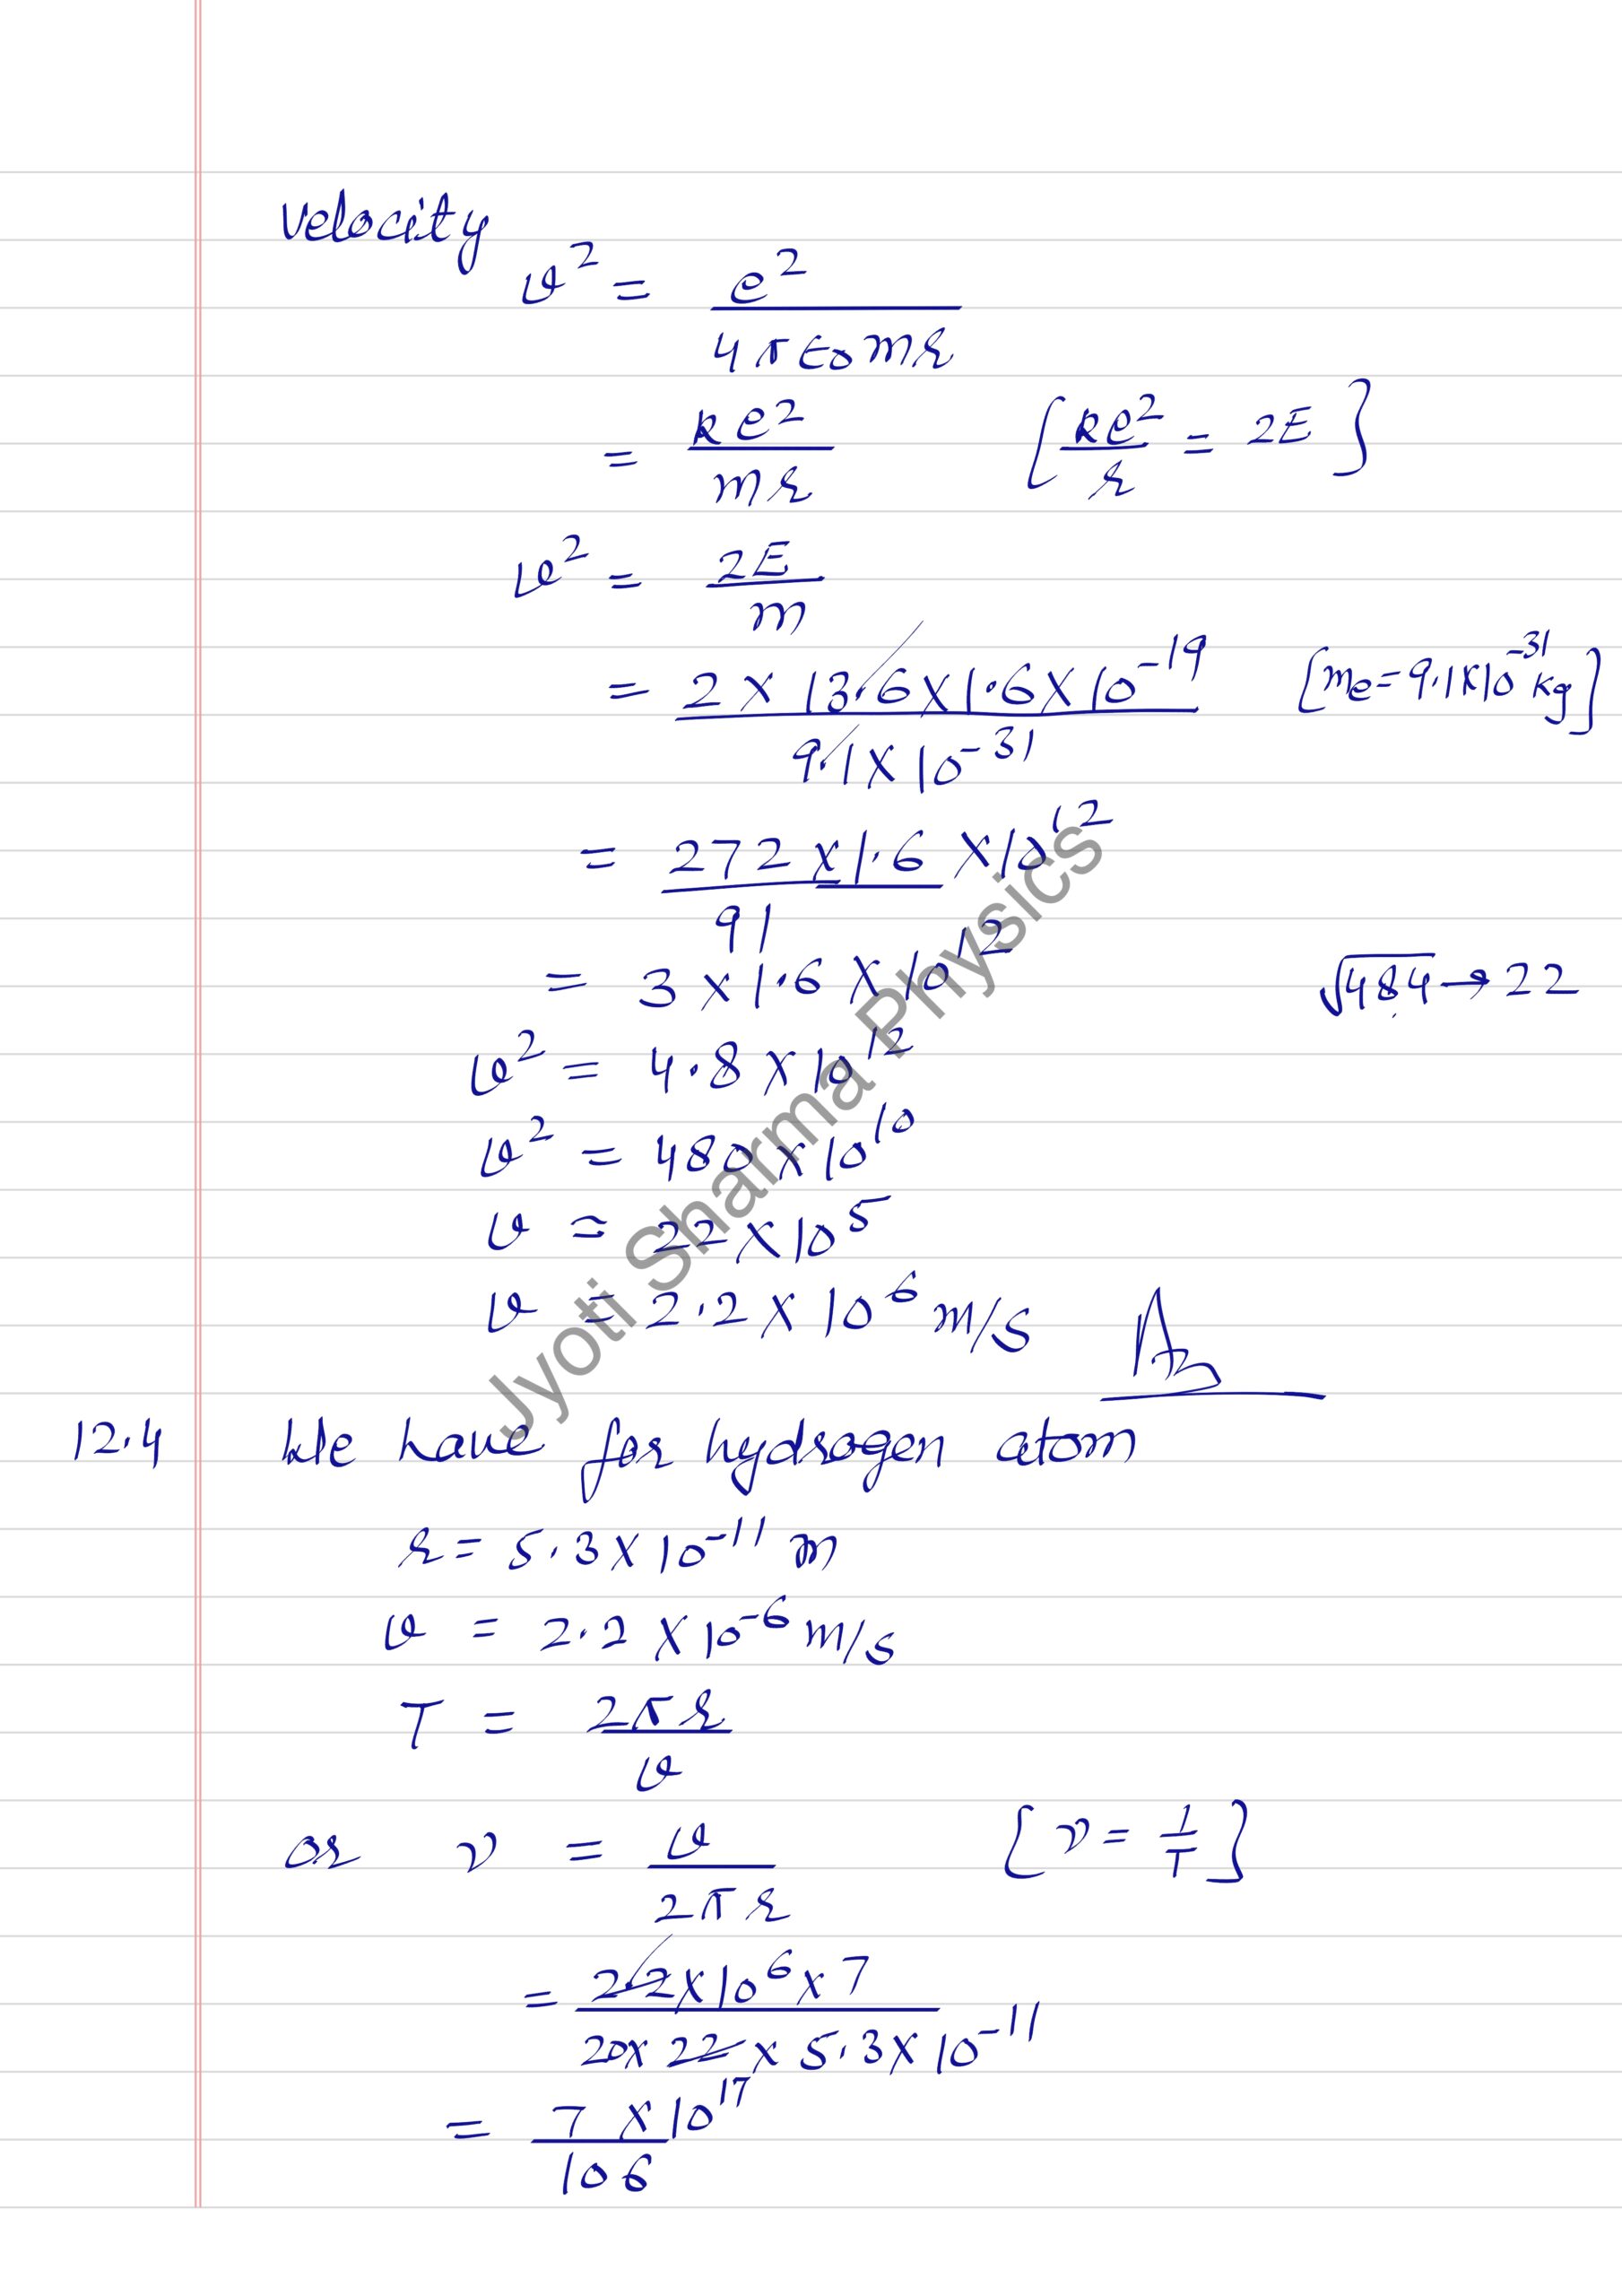 Velocity
v² = e² / 4πϵ₀mr
= ke² / mr [ke² / r = 2E]
v² = 2E / m
= 2 × 13.6 × 1.6 × 10⁻¹⁹ / 9.1 × 10⁻³¹ [me = 9.1 × 10⁻³¹ kg]
= 272 × 1.6 × 10¹² / 91
= 3 × 1.6 × 10¹² √484 → 22
v² = 4.8 × 10¹²
v² = 480 × 10¹⁰
v ≈ 22 × 10⁵
v = 2.2 × 10⁶ m/s Ans
12.4 We have for hydrogen atom
r = 5.3 × 10⁻¹¹ m
v = 2.2 × 10⁻⁶ m/s
T = 2πr / v
or ν = v / 2πr [ν = 1 / T]
= 2.2 × 10⁶ × 7 / 20 × 22 × 5.3 × 10⁻¹¹
= 7 × 10¹⁷ / 106
Jyoti Sharma Physics